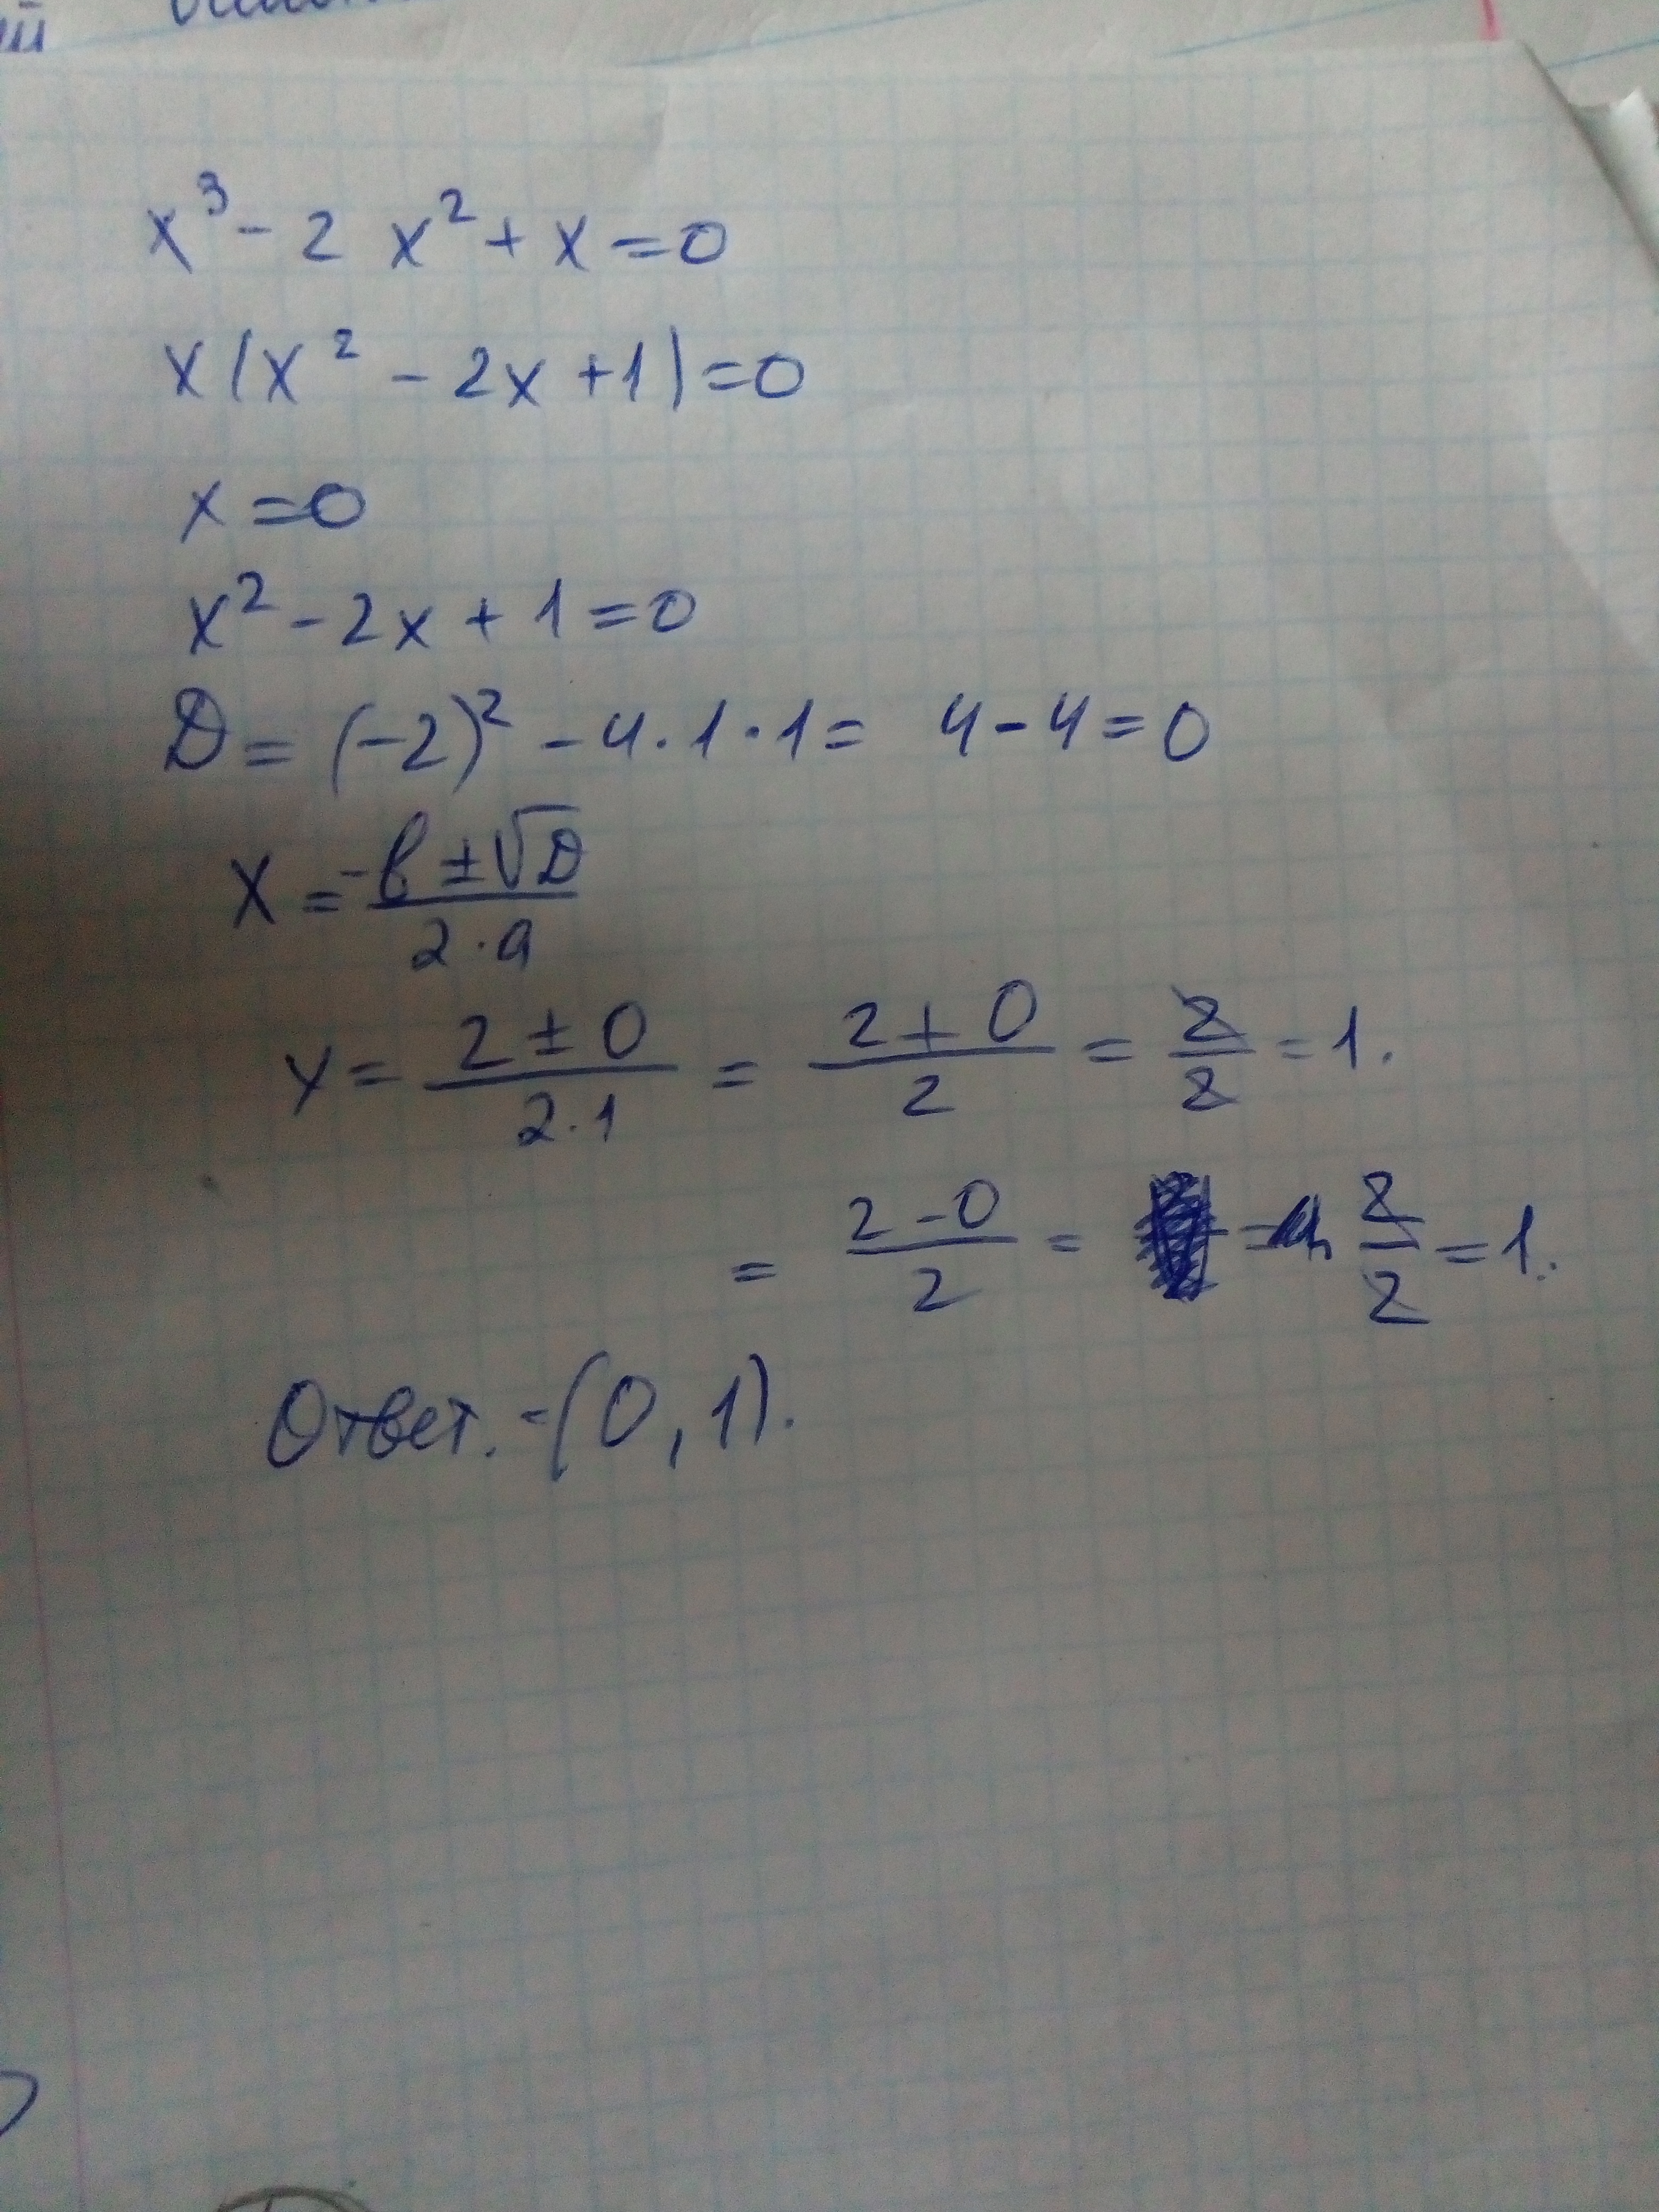 x³ - 2 x² + x = 0
x(x² - 2x + 1) = 0
x = 0
x² - 2x + 1 = 0
D = (-2)² - 4 · 1 · 1 = 4 - 4 = 0
x = -b ± √D / 2 · a
x = 2 ± 0 / 2 · 1 = 2 + 0 / 2 = 2 / 2 = 1.
= 2 - 0 / 2 = 2 / 2 = 1.
Ответ. - (0, 1).